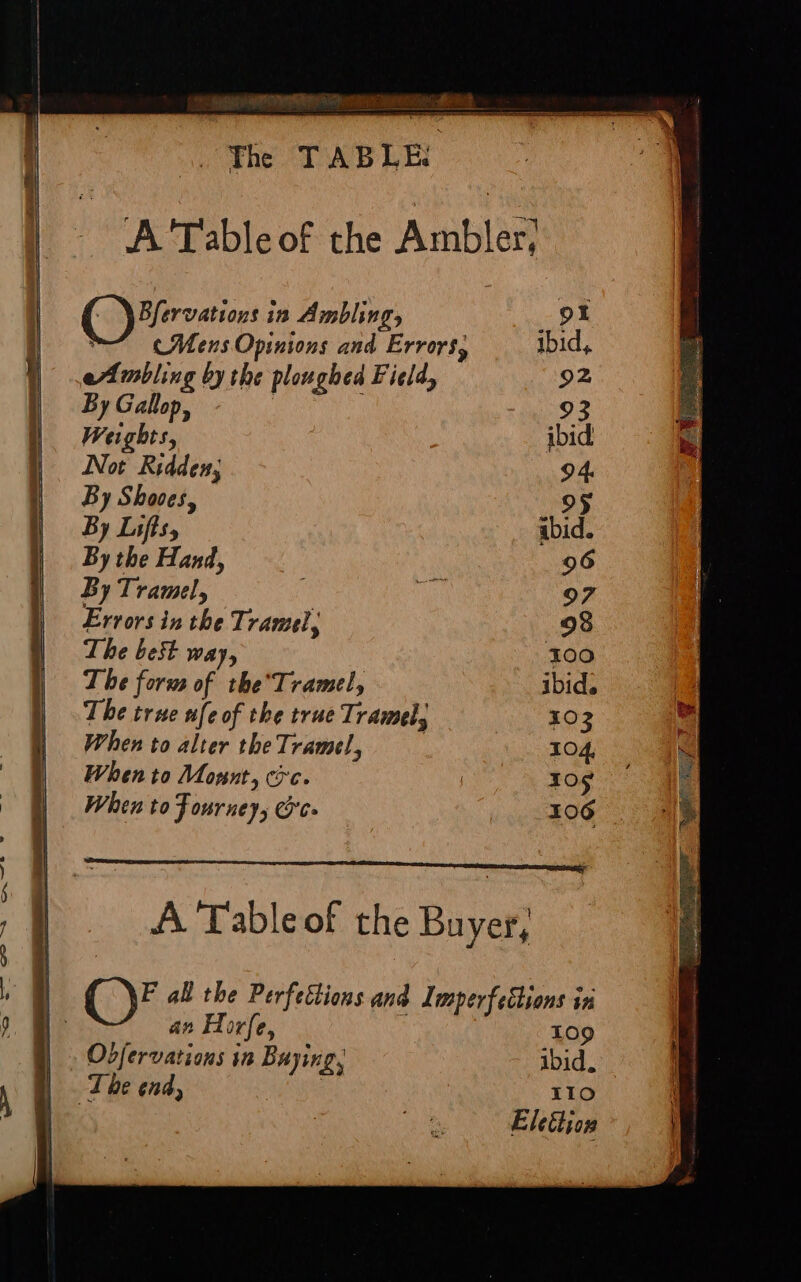 The TABLE:
A Table of the Ambler,
OBſervations in Ambling, 91
Mens Opinions and Errors, ibid,
Ambling by the ploughed Field, 92
By Gallop, 93
Weights, ibid
Not Ridden, 94
By Shooes, 95
By Lifts, ibid.
By the Hand, 96
By Tramel, 97
Errors in the Tramel, 98
The beſt way, 100
The form of the Tramel, ibid.
The true uſe of the true Tramel, 103
When to alter the Tramel, 104
When to Mount, &c. 105
When to Journey, &c. 106
A Table of the Buyer,
OF all the Perfections and Imperfections in
an Horſe, 109
Obſervations in Buying, ibid.
The end, 110
Election